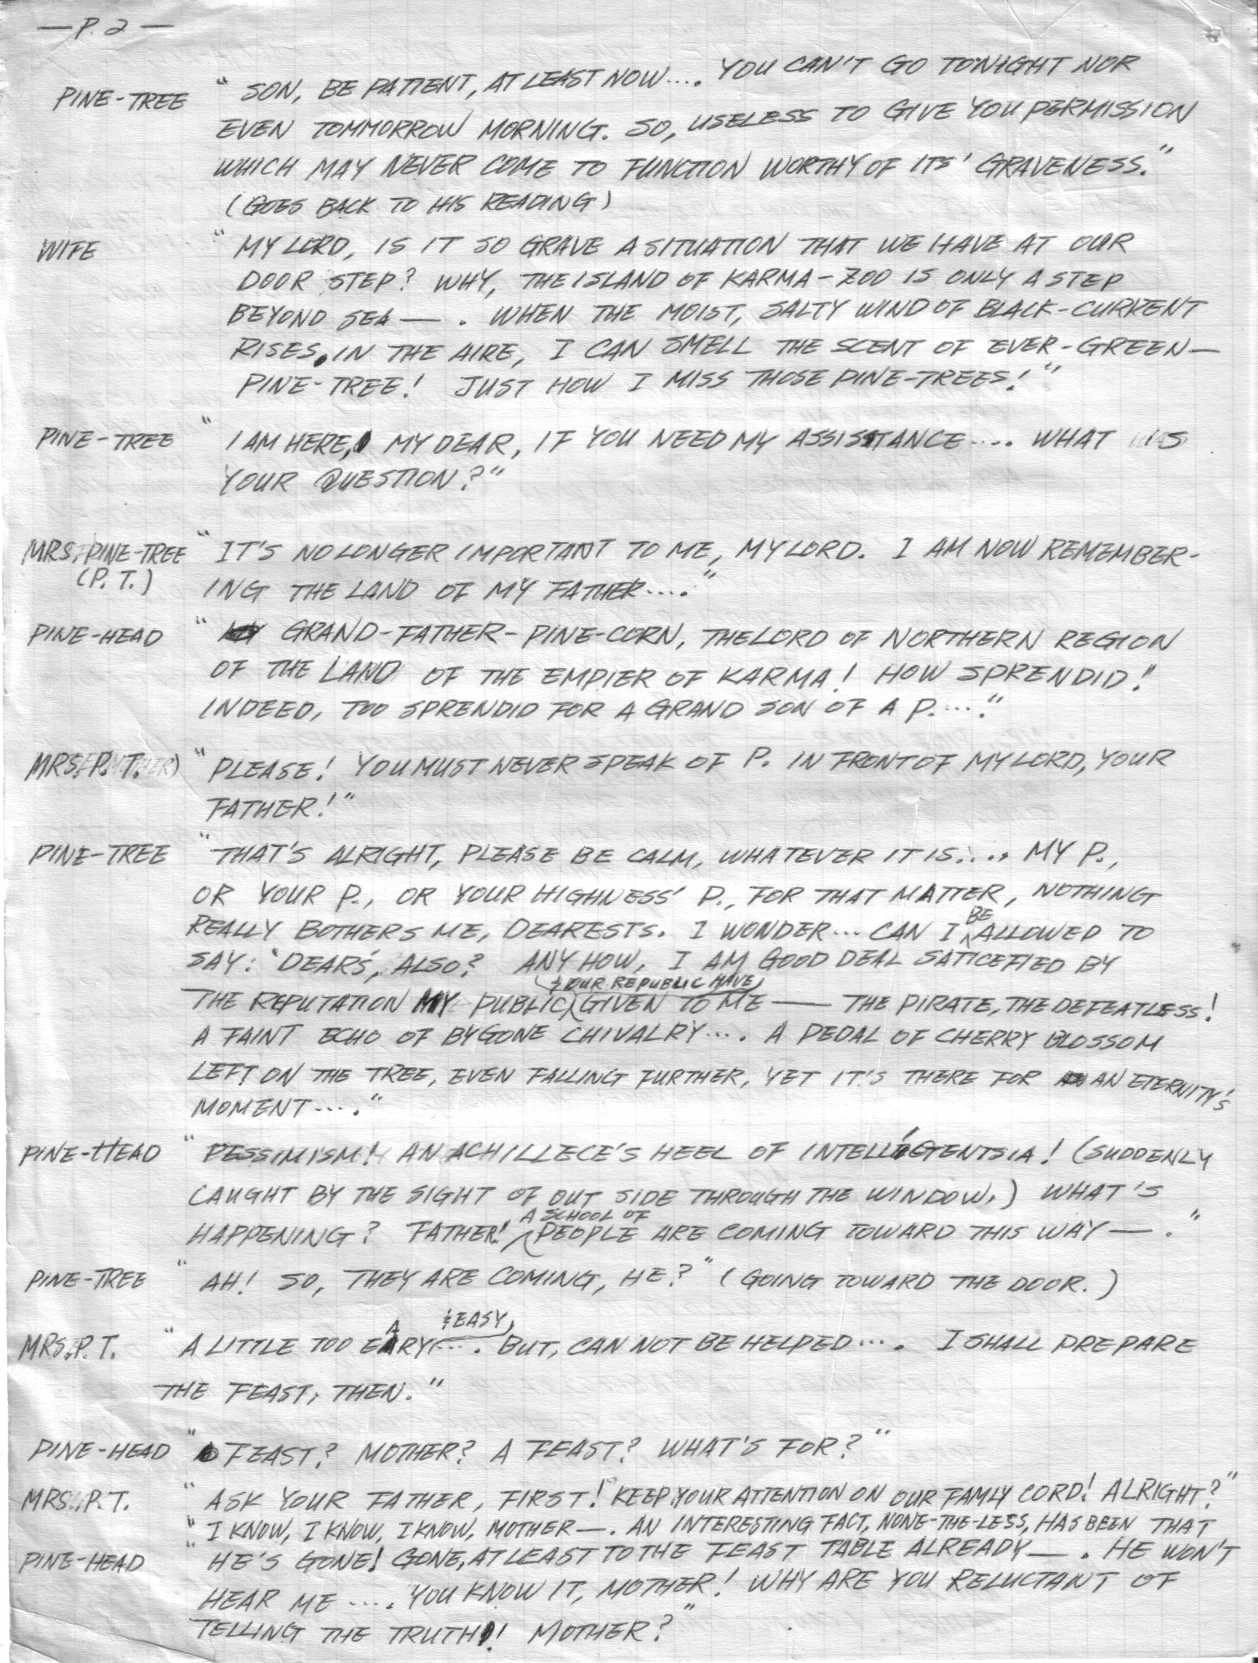 — P. 2 —
PINE-TREE " SON, BE PATIENT, AT LEAST NOW.... YOU CAN'T GO TONIGHT NOR
EVEN TOMMORROW MORNING. SO, USELESS TO GIVE YOU PERMISSION
WHICH MAY NEVER COME TO FUNCTION WORTHY OF ITS' GRAVENESS."
(GOES BACK TO HIS READING)
WIFE " MY LORD, IS IT SO GRAVE A SITUATION THAT WE HAVE AT OUR
DOOR STEP? WHY, THE ISLAND OF KARMA-ZOO IS ONLY A STEP
BEYOND SEA — . WHEN THE MOIST, SALTY WIND OF BLACK-CURRENT
RISES, IN THE AIRE, I CAN SMELL THE SCENT OF EVER-GREEN—
PINE-TREE! JUST HOW I MISS THOSE PINE-TREES!"
PINE-TREE " I AM HERE, MY DEAR, IF YOU NEED MY ASSISTANCE.... WHAT IS
YOUR QUESTION?"
MRS. PINE-TREE " IT'S NO LONGER IMPORTANT TO ME, MY LORD. I AM NOW REMEMBER-
(P. T.) ING THE LAND OF MY FATHER...."
PINE-HEAD " GRAND-FATHER-PINE-CORN, THE LORD OF NORTHERN REGION
OF THE LAND OF THE EMPIER OF KARMA! HOW SPRENDID!
INDEED, TOO SPRENDID FOR A GRAND SON OF A P....."
MRS. P. T. " PLEASE! YOU MUST NEVER SPEAK OF P. IN FRONT OF MY LORD, YOUR
FATHER!"
PINE-TREE " THAT'S ALRIGHT, PLEASE BE CALM, WHATEVER IT IS.... MY P.,
OR YOUR P., OR YOUR HIGHNESS' P., FOR THAT MATTER, NOTHING
REALLY BOTHERS ME, DEARESTS. I WONDER... CAN I BE ALLOWED TO
SAY: 'DEARS', ALSO? ANY HOW, I AM GOOD DEAL SATICEFIED BY
THE REPUTATION MY PUBLIC & OUR REPUBLIC HAVE GIVEN TO ME — THE PIRATE, THE DEFEATLESS!
A FAINT ECHO OF BYGONE CHIVALRY.... A PEDAL OF CHERRY BLOSSOM
LEFT ON THE TREE, EVEN FALLING FURTHER, YET IT'S THERE FOR AN ETERNITY'S
MOMENT...."
PINE-HEAD " PESSIMISM! AN ACHILLECE'S HEEL OF INTELLIGENTSIA! (SUDDENLY
CAUGHT BY THE SIGHT OF OUT SIDE THROUGH THE WINDOW.) WHAT'S
HAPPENING? FATHER! A SCHOOL OF PEOPLE ARE COMING TOWARD THIS WAY — ."
PINE-TREE " AH! SO, THEY ARE COMING, HE?" (GOING TOWARD THE DOOR.)
MRS. P. T. " A LITTLE TOO EARY & EASY.... BUT, CAN NOT BE HELPED.... I SHALL PREPARE
THE FEAST, THEN."
PINE-HEAD " FEAST? MOTHER? A FEAST? WHAT'S FOR?"
MRS. P. T. " ASK YOUR FATHER, FIRST! KEEP YOUR ATTENTION ON OUR FAMLY CORD! ALRIGHT?"
" I KNOW, I KNOW, I KNOW, MOTHER—. AN INTERESTING FACT, NONE-THE-LESS, HAS BEEN THAT
PINE-HEAD " HE'S GONE! GONE, AT LEAST TO THE FEAST TABLE ALREADY—. HE WON'T
HEAR ME .... YOU KNOW IT, MOTHER! WHY ARE YOU RELUCTANT OF
TELLING THE TRUTH! MOTHER?"